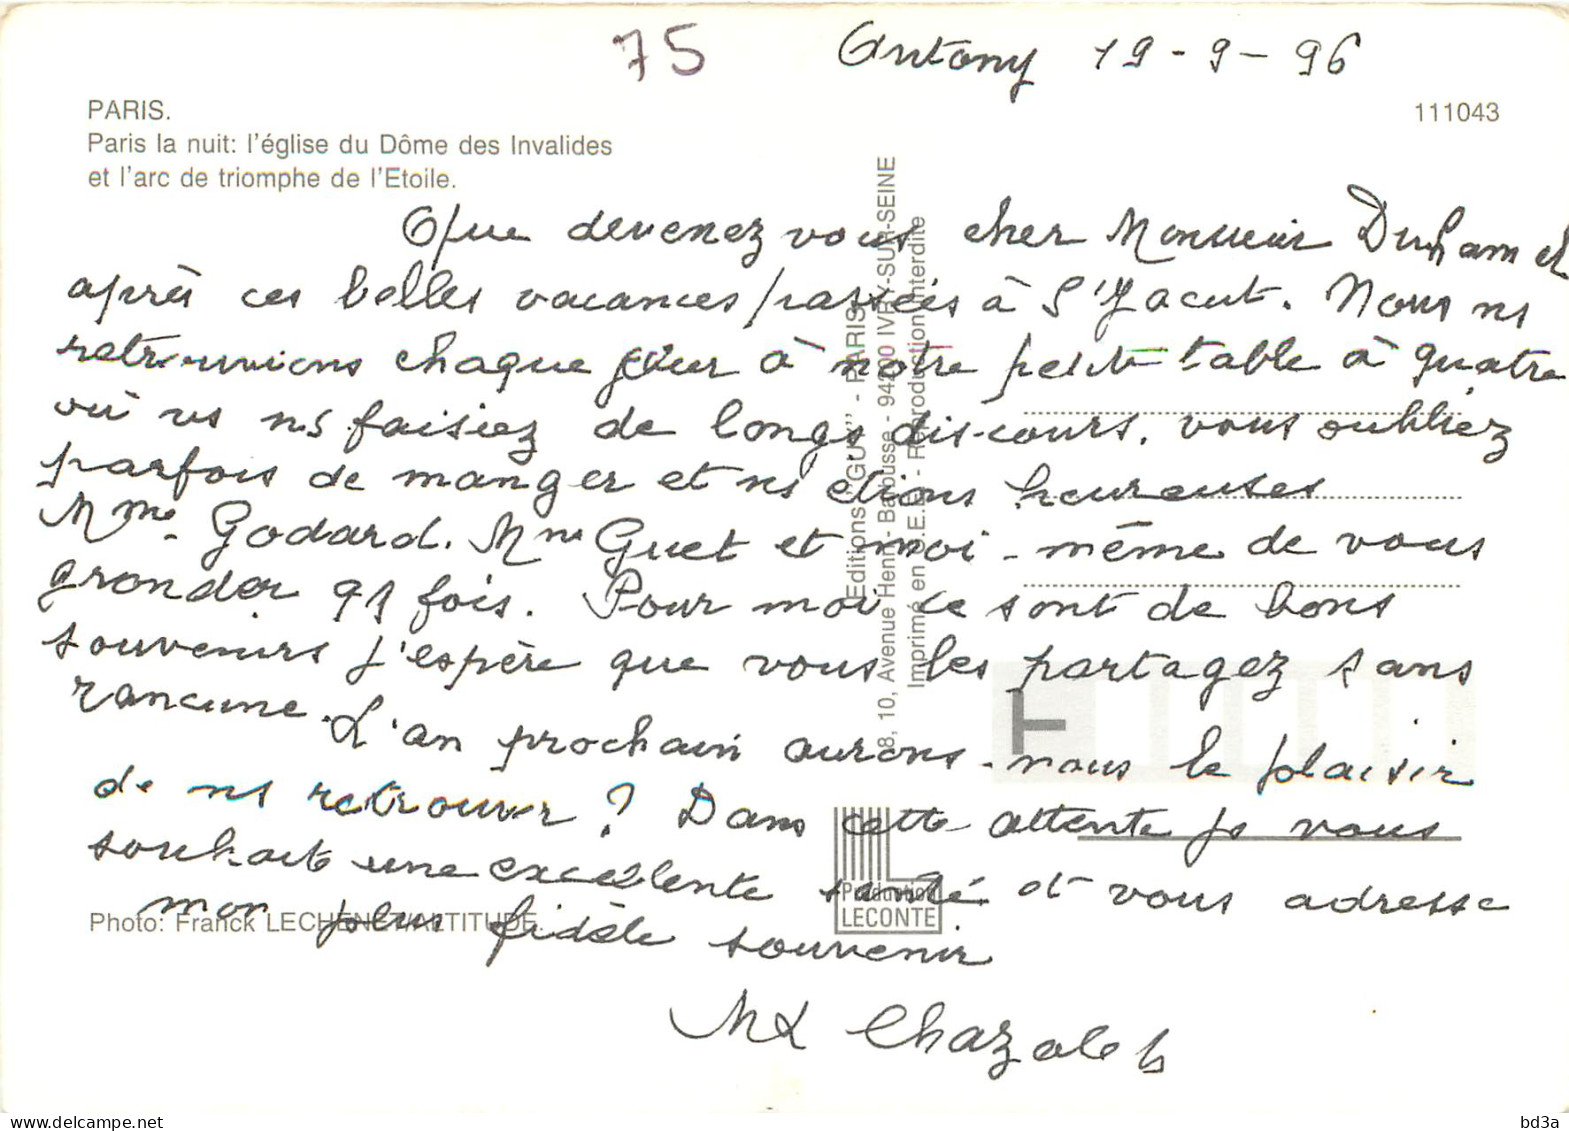 75
Antony 19-9-96
PARIS.
Paris la nuit: l'église du Dôme des Invalides
et l'arc de triomphe de l'Etoile.
111043
Que devenez vous cher Monsieur Duhamel
après ces belles vacances passées à St Jacut. Nous ns
retrouvions chaque jour à notre petite table à quatre
où vs ns faisiez de longs discours, vous oubliez
parfois de manger et ns étions heureuses
Mme Godard. Mme Guet et moi-même de vous
gronder qq fois. Pour moi ce sont de bons
souvenirs j'espère que vous les partagez sans
rancune. L'an prochain aurons-nous le plaisir
de ns retrouver ? Dans cette attente je vous
souhaite une excellente santé et vous adresse
mon plus fidèle souvenir
Chazalet
Photo: Franck LECHENET/ALTITUDE.
Editions "GUY" - PARIS
8, 10, Avenue Henri-Barbusse - 94200 IVRY-SUR-SEINE
Imprimé en C.E.E. - Reproduction interdite
Production
LECONTE
www.delcampe.net
bd3a